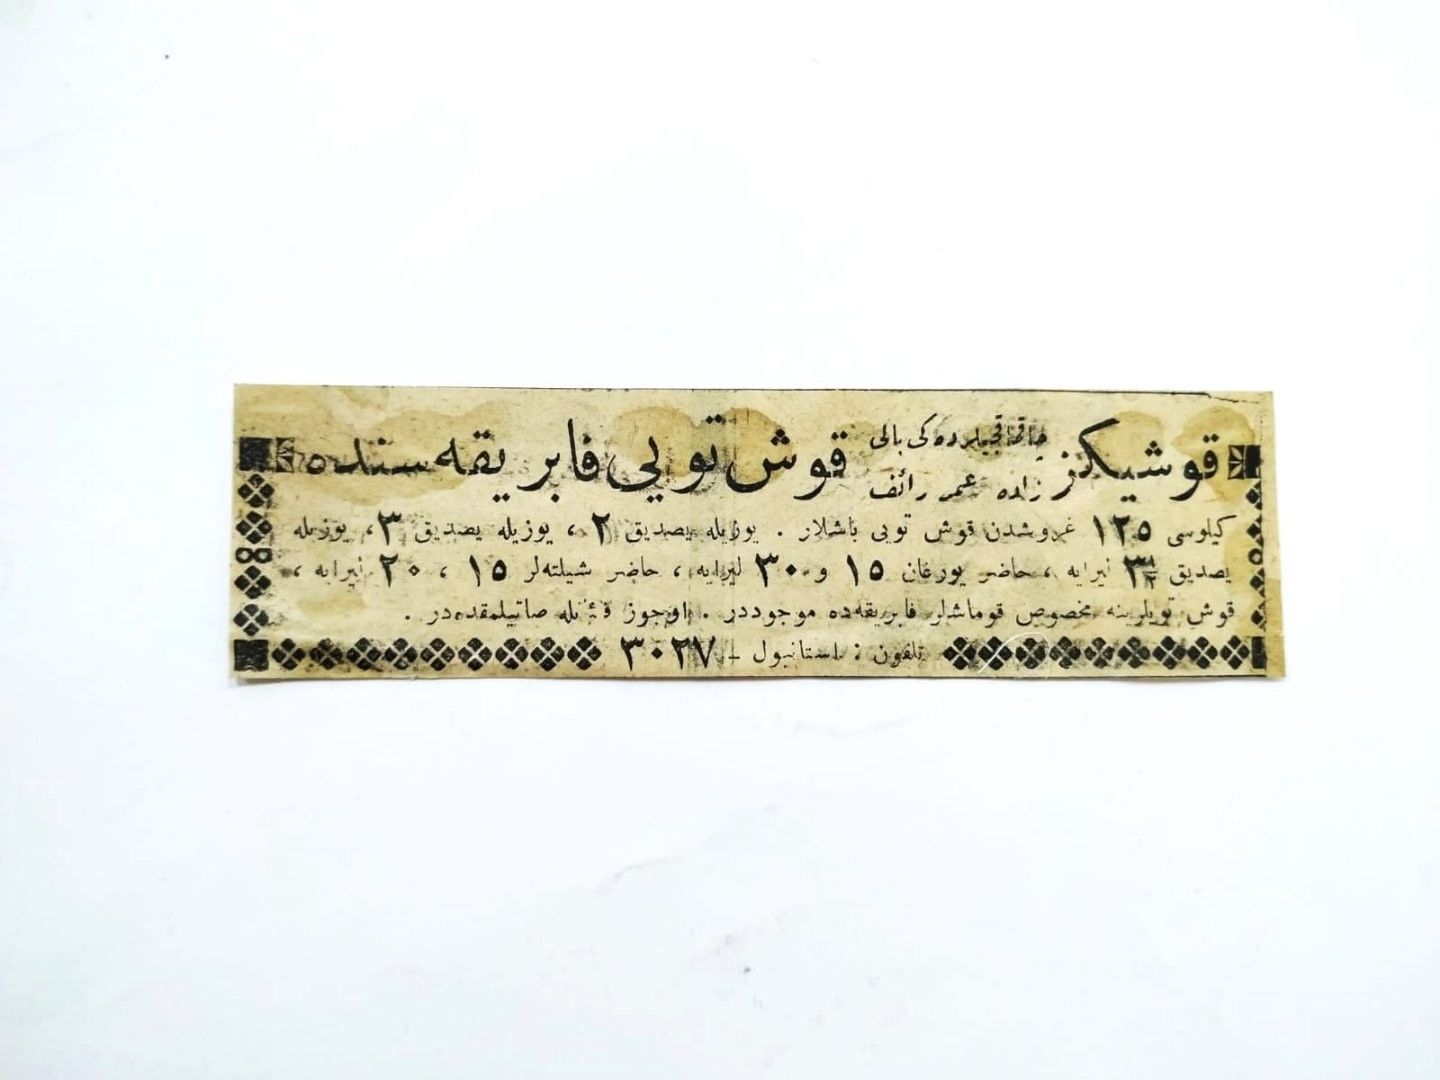 قوشیکز چاقماقجیلرده کی بالی زاده عمر رائف قوش تویی فابریقه سنده
کیلوسی ١٢٥ غروشدن قوش تویی باشلار . یوزیله یصدیق ٢ ، یوزیله یصدیق ٣ ، یوزیله
یصدیق ٣½ لیرایه ، حاضر یورغان ١٥ و ٣٠ لیرایه ، حاضر شیلته‌لر ١٥ ، ٢٠ لیرایه ،
قوش تویلرینه مخصوص قوماشلر فابریقه‌ده موجوددر . اوجوز فیئله صاتیلمقده‌در .
تلفون : استانبول - ٣٠٢٧